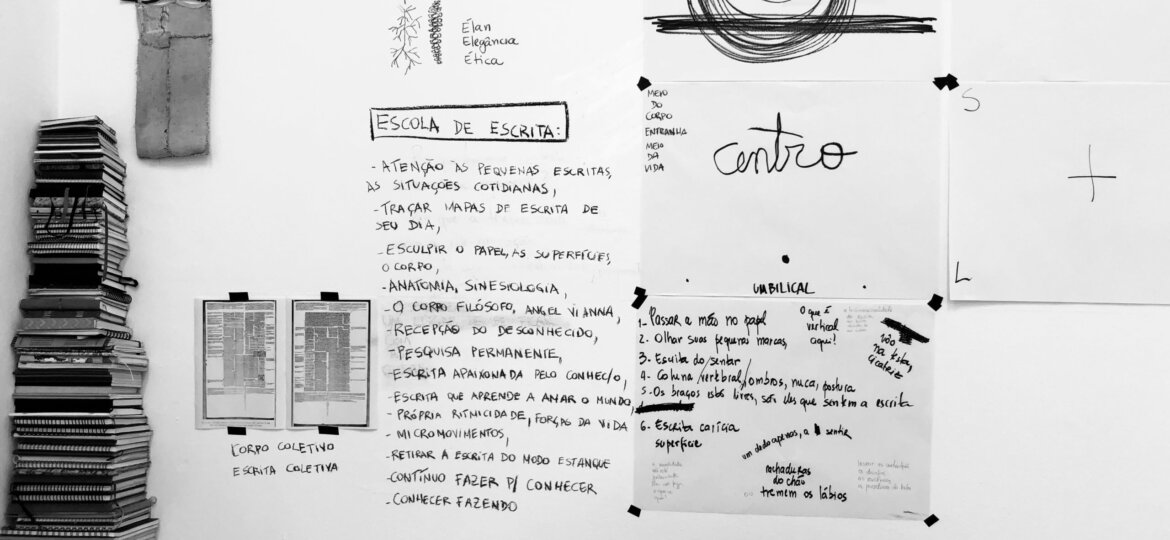 Élan
Elegância
Ética
ESCOLA DE ESCRITA:
- ATENÇÃO ÀS PEQUENAS ESCRITAS,
ÀS SITUAÇÕES COTIDIANAS,
- TRAÇAR MAPAS DE ESCRITA DE
SEU DIA,
- ESCULPIR O PAPEL, AS SUPERFÍCIES,
O CORPO,
- ANATOMIA, SINESIOLOGIA,
- O CORPO FILÓSOFO, ANGEL VIANNA,
- RECEPÇÃO DO DESCONHECIDO,
- PESQUISA PERMANENTE,
- ESCRITA APAIXONADA PELO
- ESCRITA QUE APRENDE A AMAR O MUNDO,
- PRÓPRIA RITMICIDADE, FORÇAS DA VIDA
- MICROMOVIMENTOS,
- RETIRAR A ESCRITA DO MODO ESTANQUE
- CONTÍNUO FAZER P/ CONHECER
- CONHECER FAZENDO
CORPO COLETIVO
ESCRITA COLETIVA
MEIO
DO
CORPO
ENTRANHA
MEIO
DA
VIDA
centro
UMBILICAL
S
L
1- Passar a mão no papel
2. Olhar suas pequenas marcas,
3- Escrita do sentar
4- Coluna vertebral, ombros, nuca, postura
5- Os braços estão livres, são eles que sentem a escrita
6. Escrita carícia
superfície
O que é
vertical
aqui?
um dedo apenas, a sentir
rachaduras
do chão
tremem os lábios